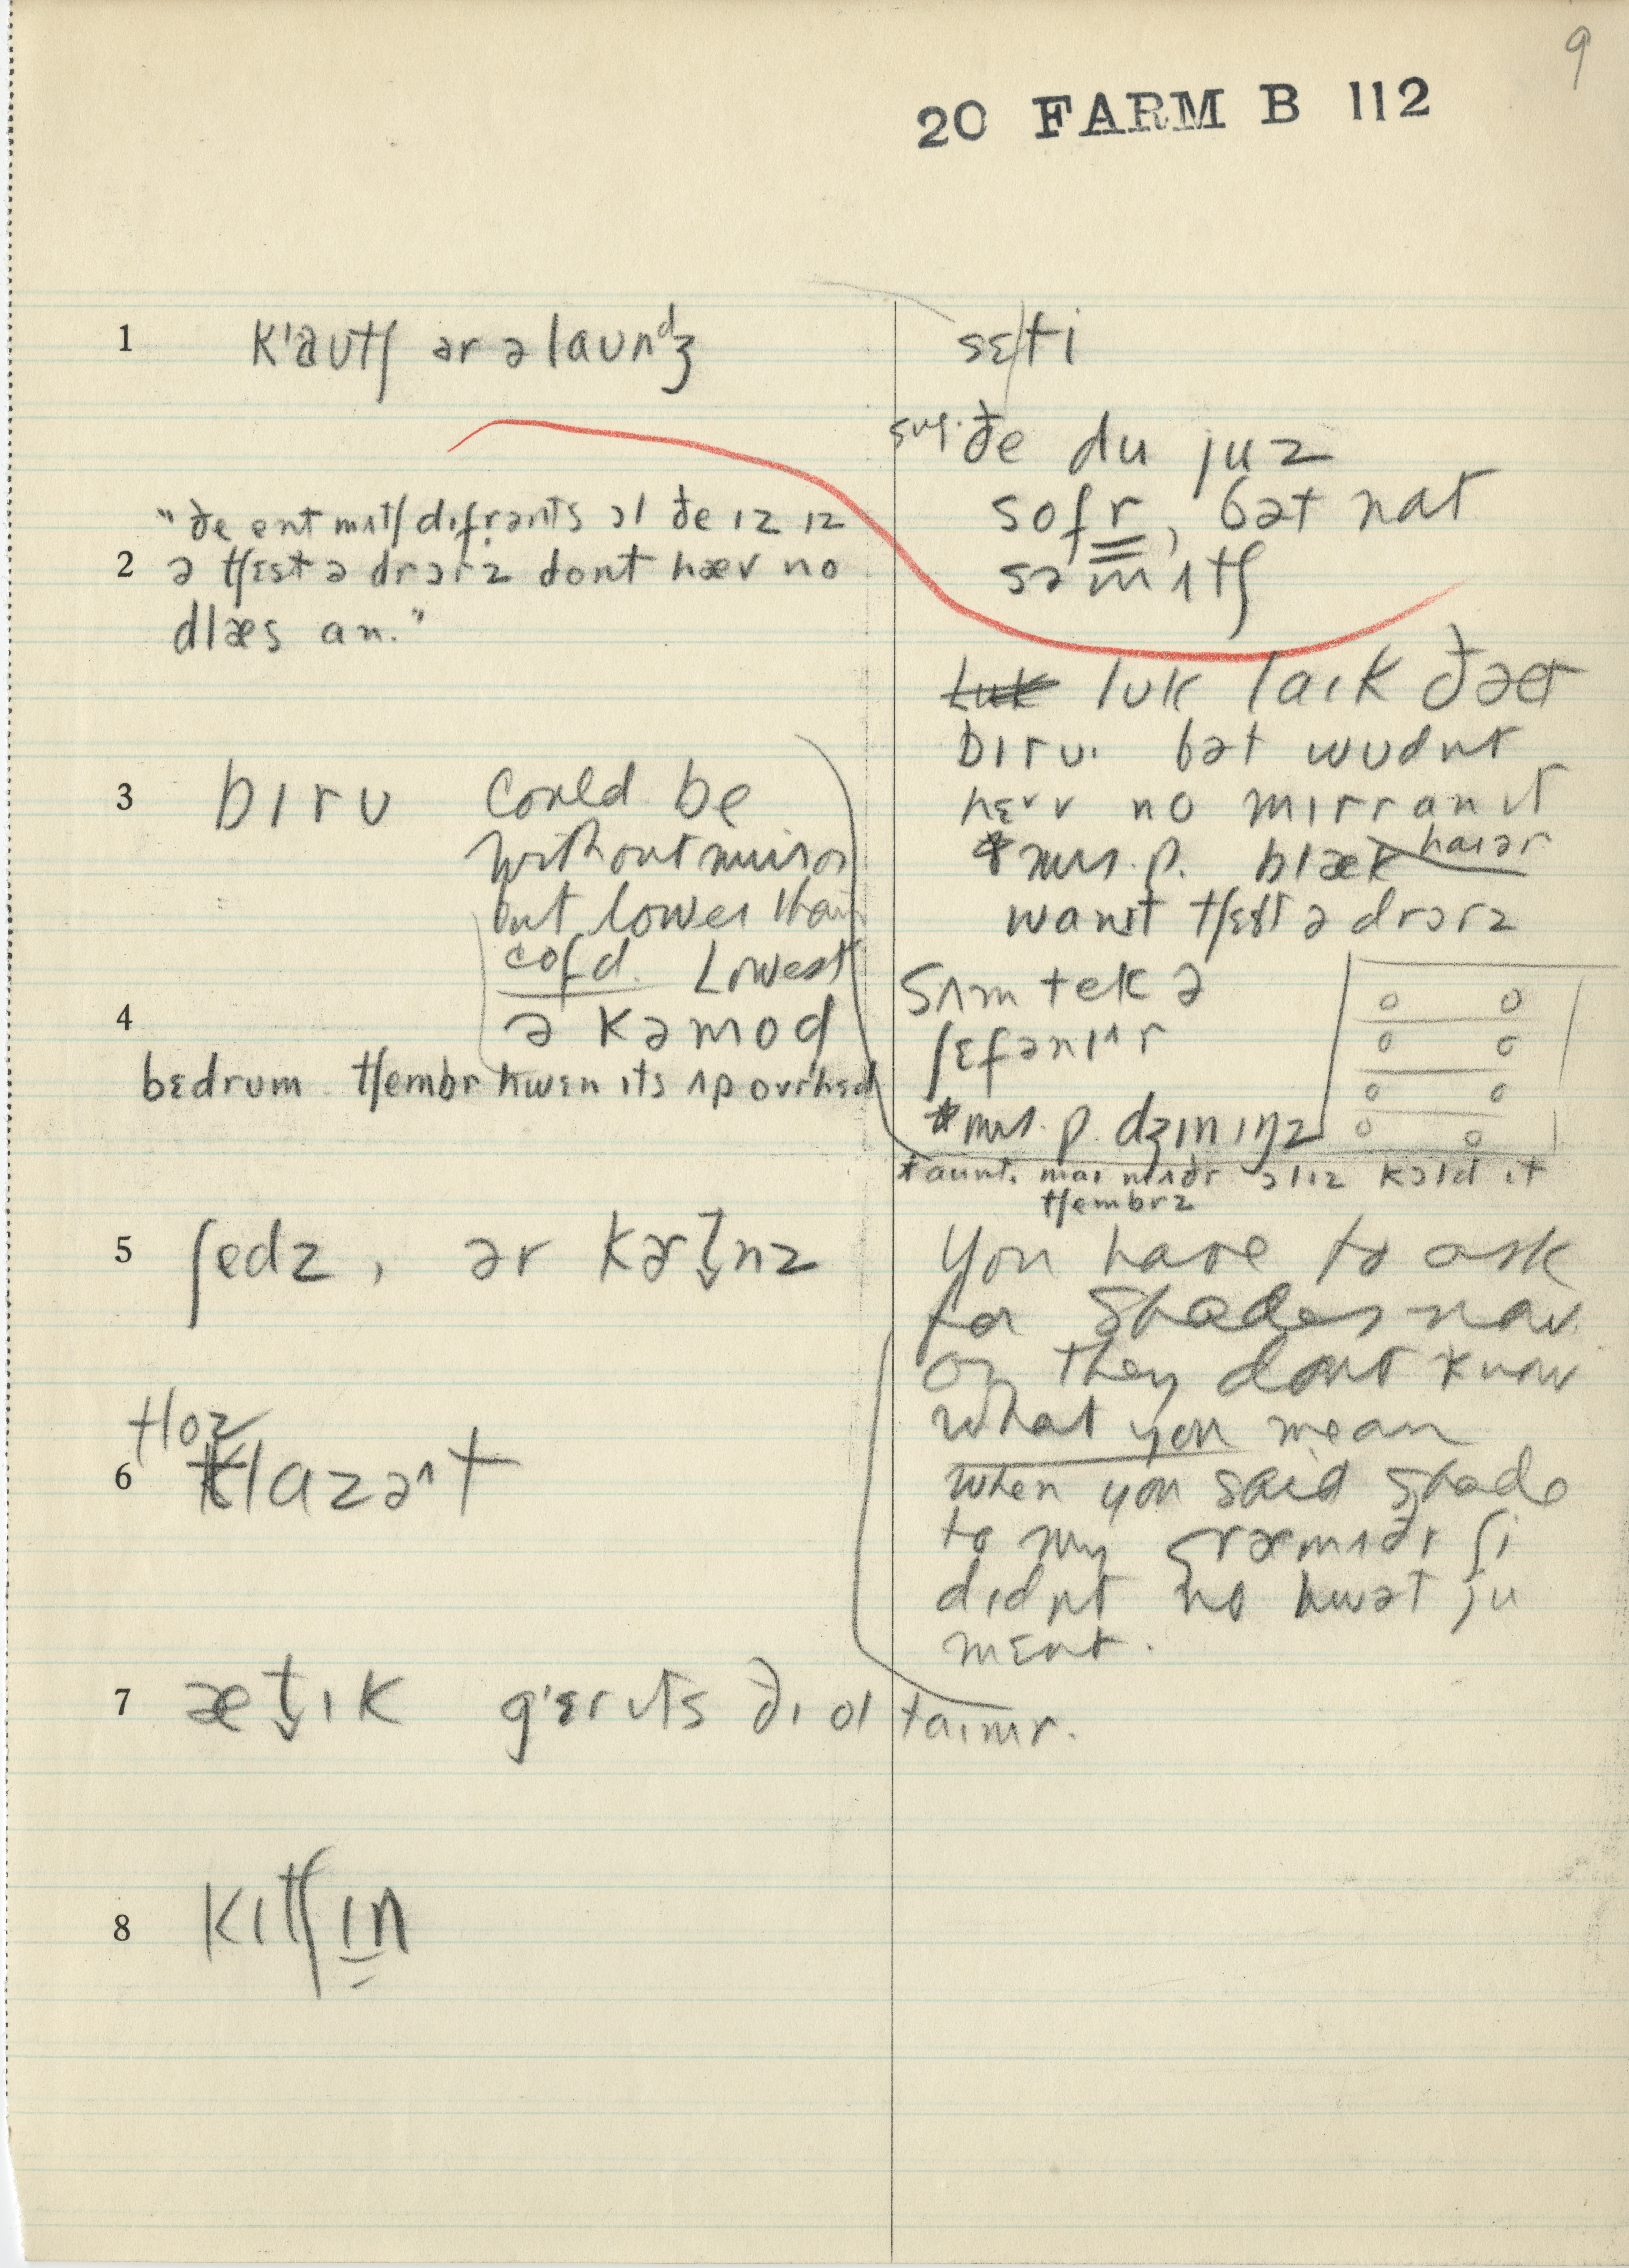 9
20 FARM B 112
1 k'autʃ ər ə launᵈʒ
sɛti
sug. ðe du juz
sofr, bət nat
sə mʌtʃ
"ðe ent mʌtʃ difrənts ɔl ðe ɪz ɪz
2 ə tʃɛst ə drɔrz dont hæv no
dlæs an."
luk lʊk laɪk ðæt
bɪrʊ. bət wʊdnt
hɛv no mɪrr an ɪt
*mrs. p. blæk haɪər
want tʃɛst ə drɔrz
3 bɪrʊ could be
without mirror
but lower than
cofd. Lowest
4 ə kəmod
bɛdrum tʃembr hwɛn ɪts ʌp ovrhɛd
sʌm tek ə
ʃɛfənɪʌr
*mrs. p. dʒɪnɪŋz
*aunt. maɪ mʌðr ɔlɪz kɔld ɪt
tʃembrz
5 ʃedz, ər kɚt̬nz
You have to ask
for shades now
or they dont know
what you mean
when you said shade
to my græmʌðr ʃi
dɪdnt no hwət ju
mɛnt.
tloz
6 klazəʌt
7 æt̬ɪk g'ɛrɪts ðɪ ol taɪmr.
8 kɪtʃɪn